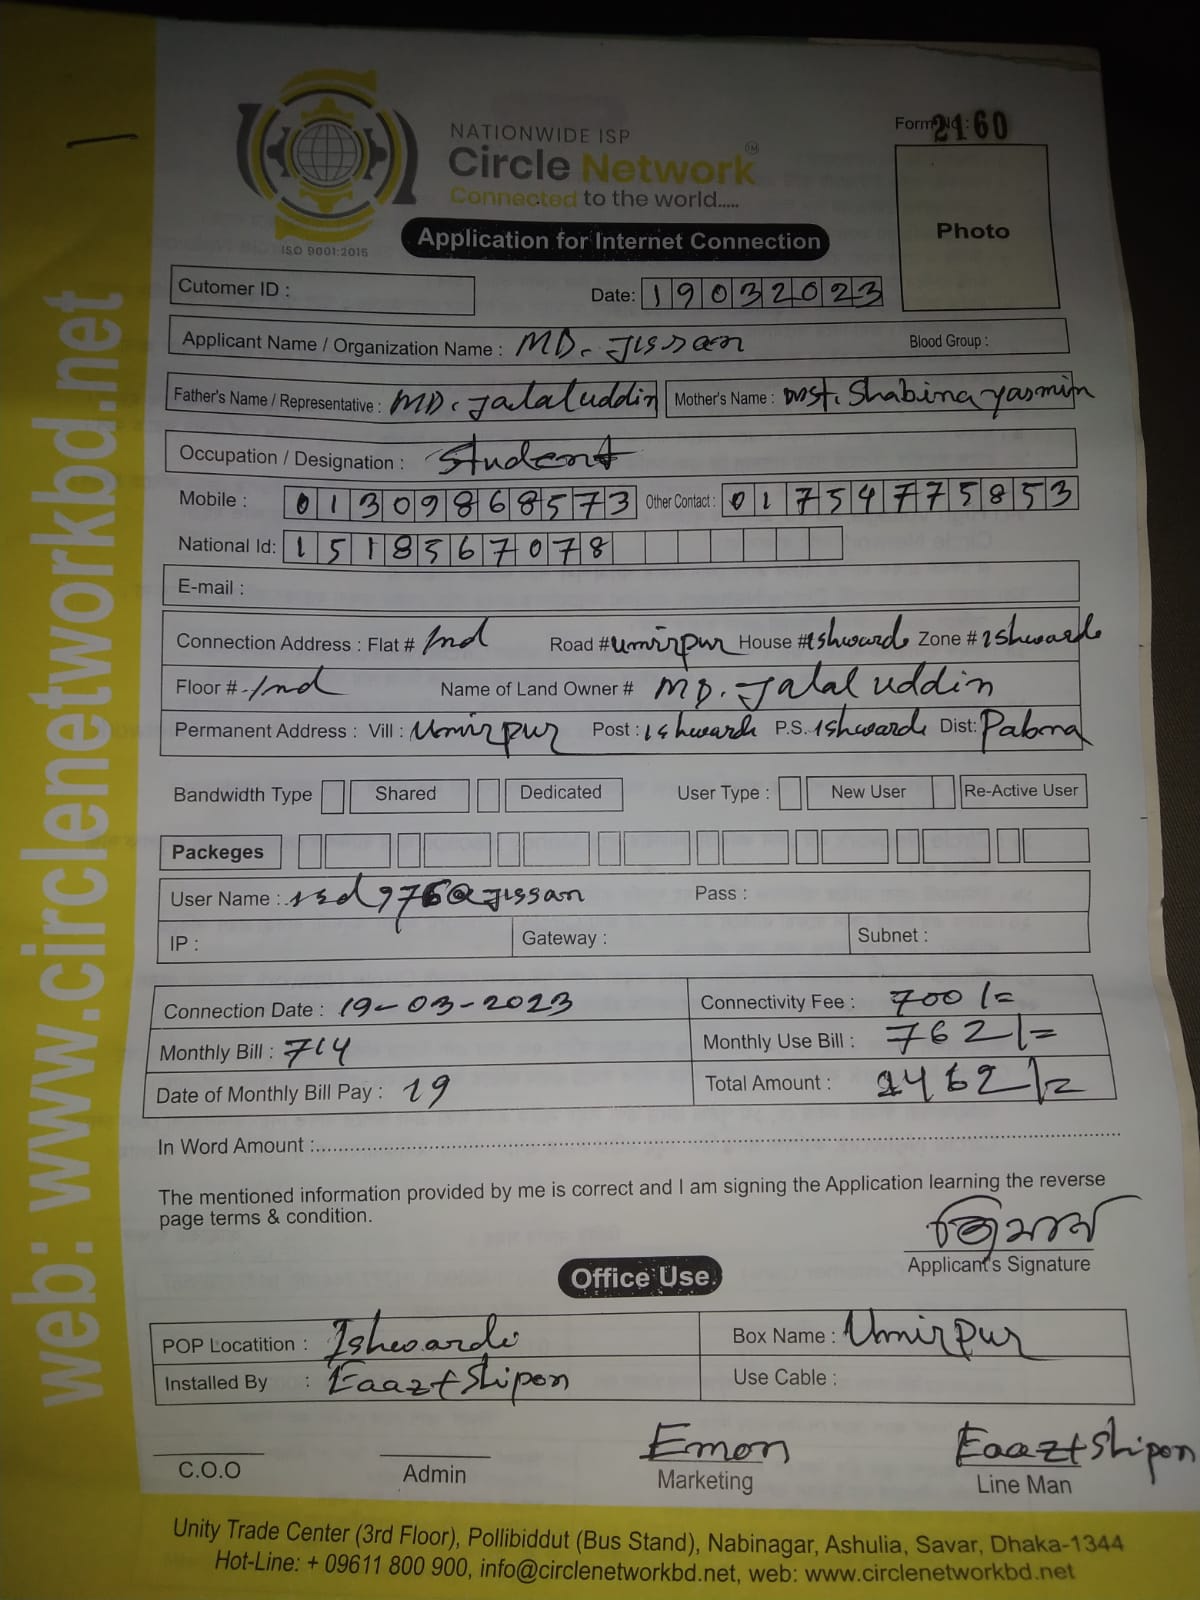 NATIONWIDE ISP
Circle Network TM
Connected to the world.....
ISO 9001:2015
Form No.: 2160
Photo
Application for Internet Connection
Cutomer ID :
Date: 19032023
Applicant Name / Organization Name : MD. Jissan Blood Group :
Father's Name / Representative : MD. Jalal uddin Mother's Name : Mst. Shabina yasmin
Occupation / Designation : Student
Mobile : 01309868573 Other Contact : 01754775853
National Id: 1518567078
E-mail :
Connection Address : Flat # Ind Road # Umirpur House # Ishwardi Zone # Ishwardi
Floor # Ind Name of Land Owner # MD. Jalal uddin
Permanent Address : Vill : Umirpur Post : Ishwardi P.S. Ishwardi Dist: Pabna
Bandwidth Type Shared Dedicated User Type : New User Re-Active User
Packeges
User Name : isd976@jissan Pass :
IP : Gateway : Subnet :
Connection Date : 19-03-2023 Connectivity Fee : 700/=
Monthly Bill : 714 Monthly Use Bill : 762/=
Date of Monthly Bill Pay : 19 Total Amount : 1462/=
In Word Amount :
The mentioned information provided by me is correct and I am signing the Application learning the reverse
page terms & condition.
Applicant's Signature
Office Use
POP Locatition : Ishwardi Box Name : Umirpur
Installed By : Eaaz+Shipon Use Cable :
Emon Eaaz+Shipon
C.O.O Admin Marketing Line Man
Unity Trade Center (3rd Floor), Pollibiddut (Bus Stand), Nabinagar, Ashulia, Savar, Dhaka-1344
Hot-Line: + 09611 800 900, info@circlenetworkbd.net, web: www.circlenetworkbd.net
web: www.circlenetworkbd.net